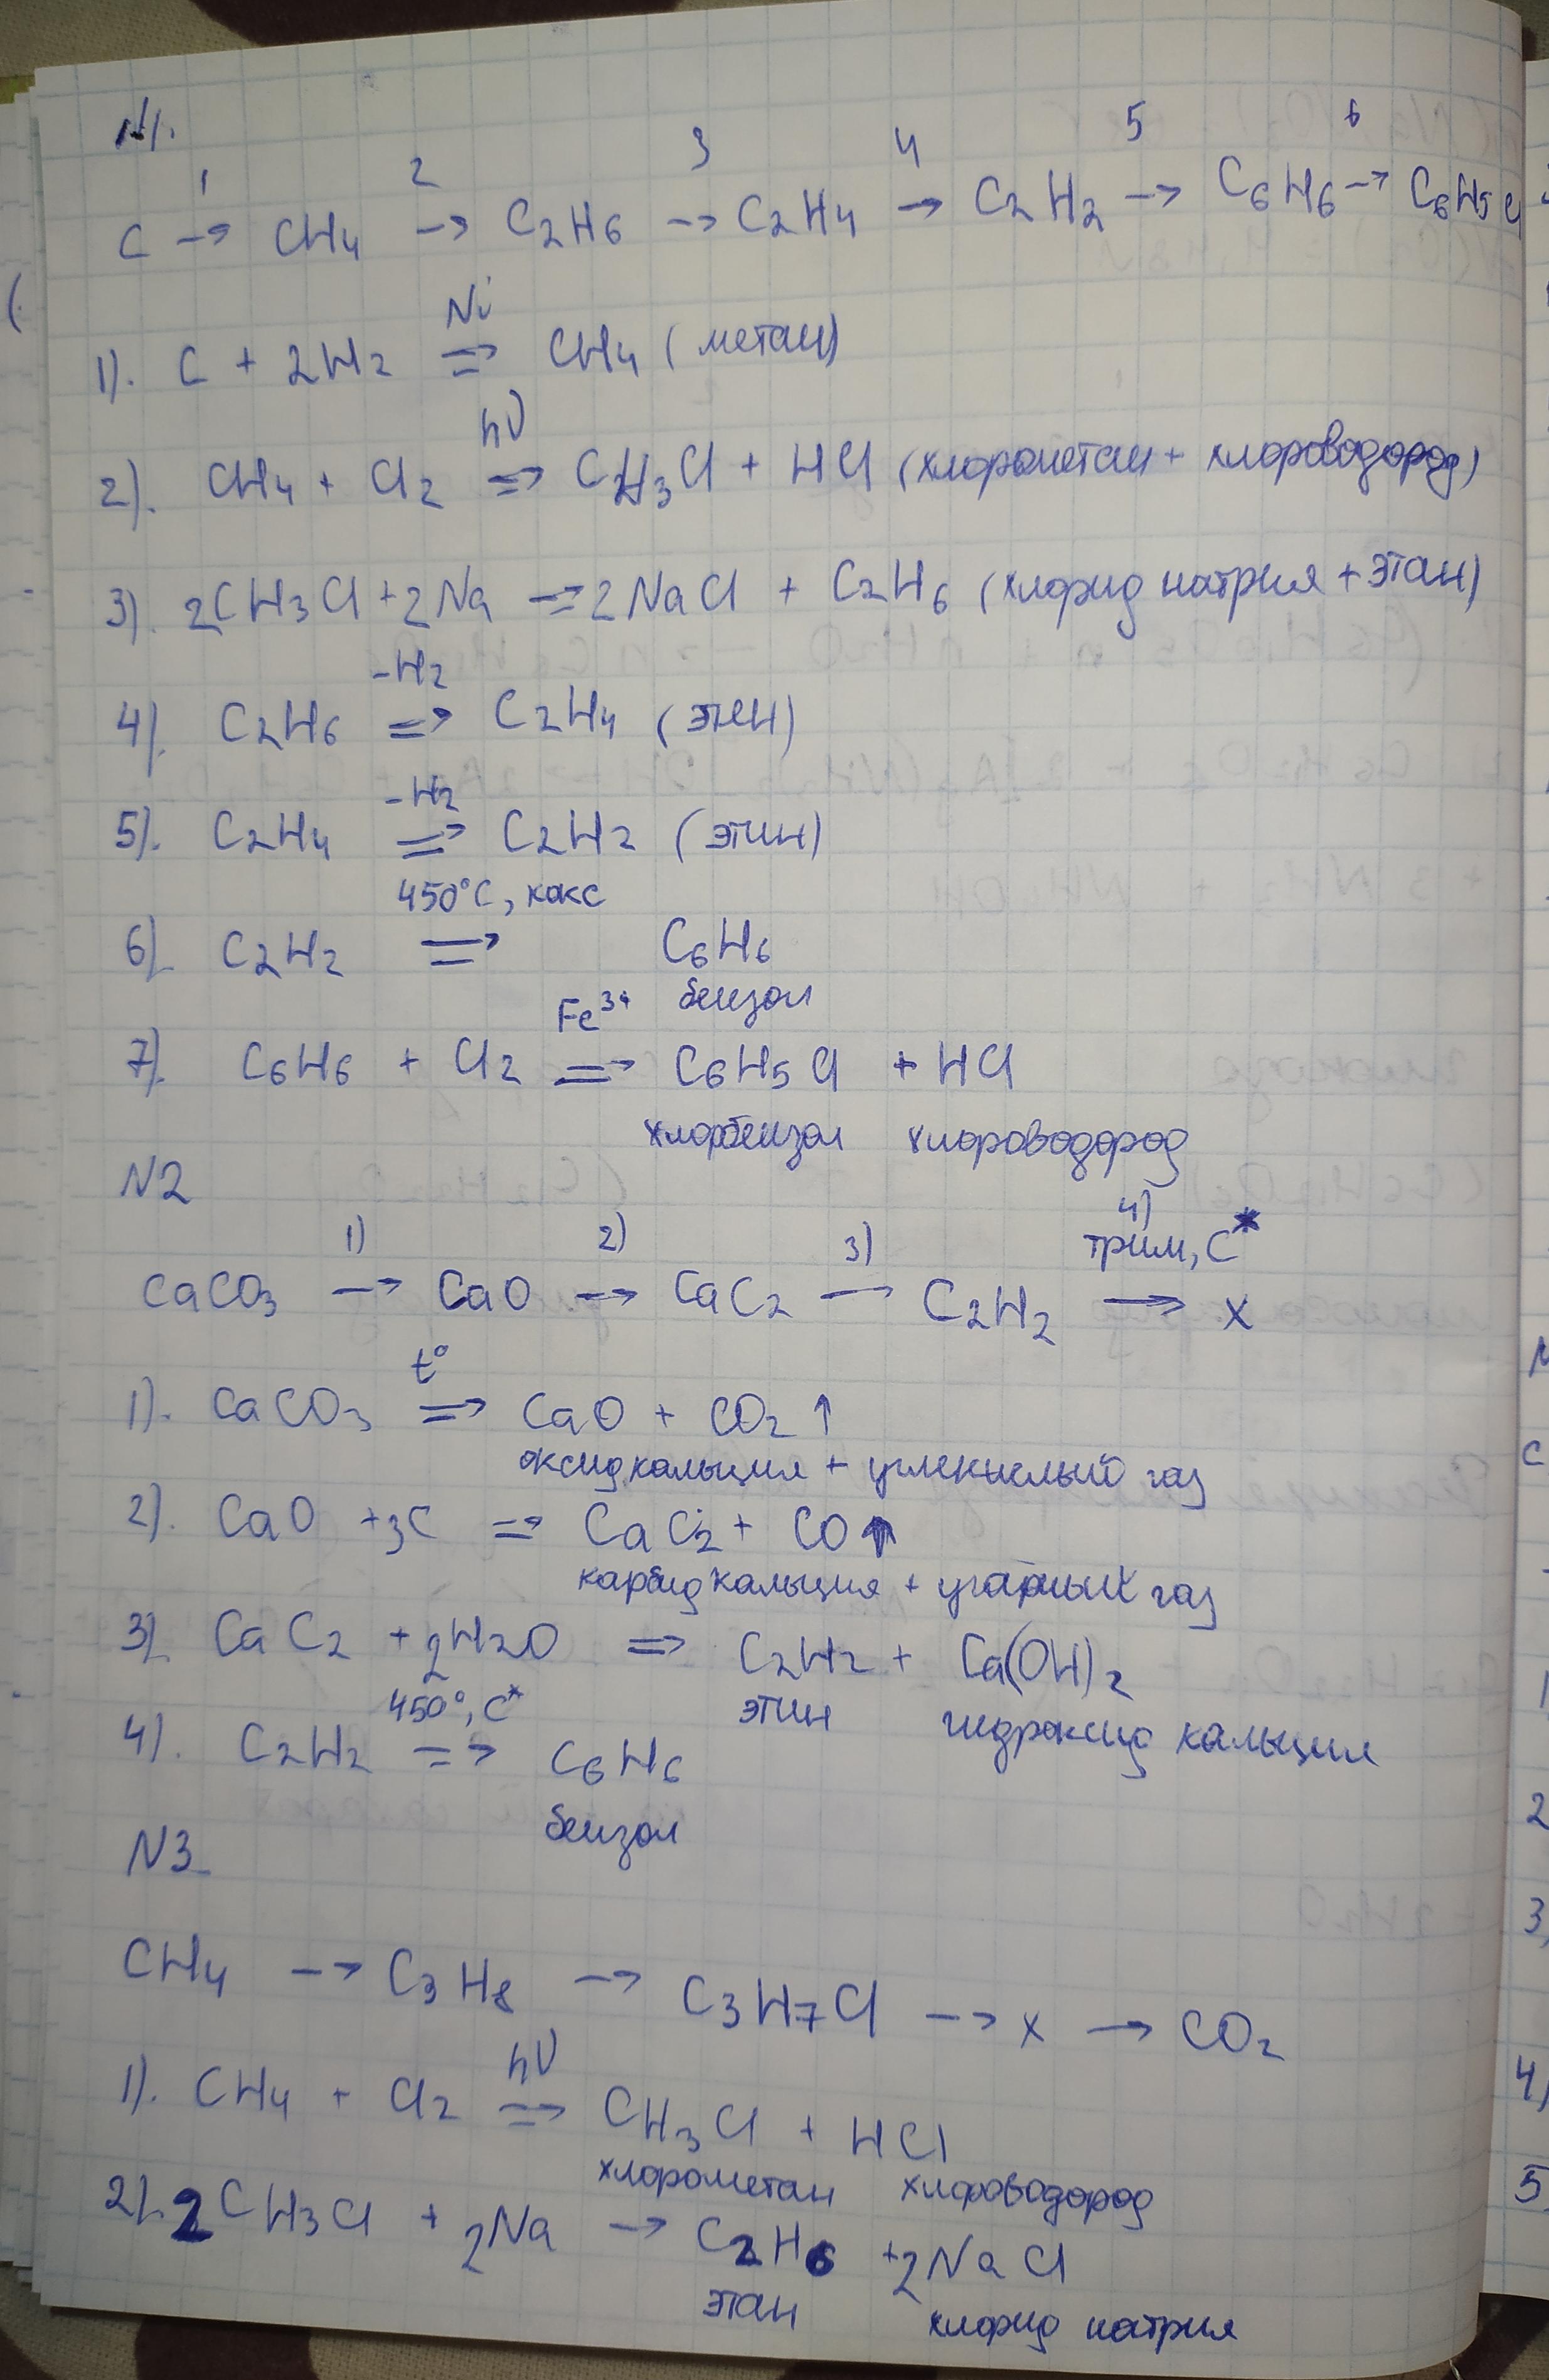 N1.
1 2 3 4 5 6
C → CH4 → C2H6 → C2H4 → C2H2 → C6H6 → C6H5Cl
Ni
1). C + 2H2 => CH4 (метан)
hν
2). CH4 + Cl2 => CH3Cl + HCl (хлорометан + хлороводород)
3). 2CH3Cl + 2Na => 2NaCl + C2H6 (хлорид натрия + этан)
-H2
4). C2H6 => C2H4 (этен)
-H2
5). C2H4 => C2H2 (этин)
450°C, кокс
6). C2H2 => C6H6
бензол
Fe3+
7). C6H6 + Cl2 => C6H5Cl + HCl
хлорбензол хлороводород
N2
1) 2) 3) 4)
трим, C*
CaCO3 → CaO → CaC2 → C2H2 → x
t°
1). CaCO3 => CaO + CO2↑
оксид кальция + углекислый газ
2). CaO + 3C => CaC2 + CO↑
карбид кальция + угарных газ
3). CaC2 + 2H2O => C2H2 + Ca(OH)2
этин гидроксид кальция
450°, C*
4). C2H2 => C6H6
бензол
N3
CH4 → C3H8 → C3H7Cl → x → CO2
hν
1). CH4 + Cl2 => CH3Cl + HCl
хлорометан хлороводород
2). 2CH3Cl + 2Na → C2H6 + 2NaCl
этан хлорид натрия